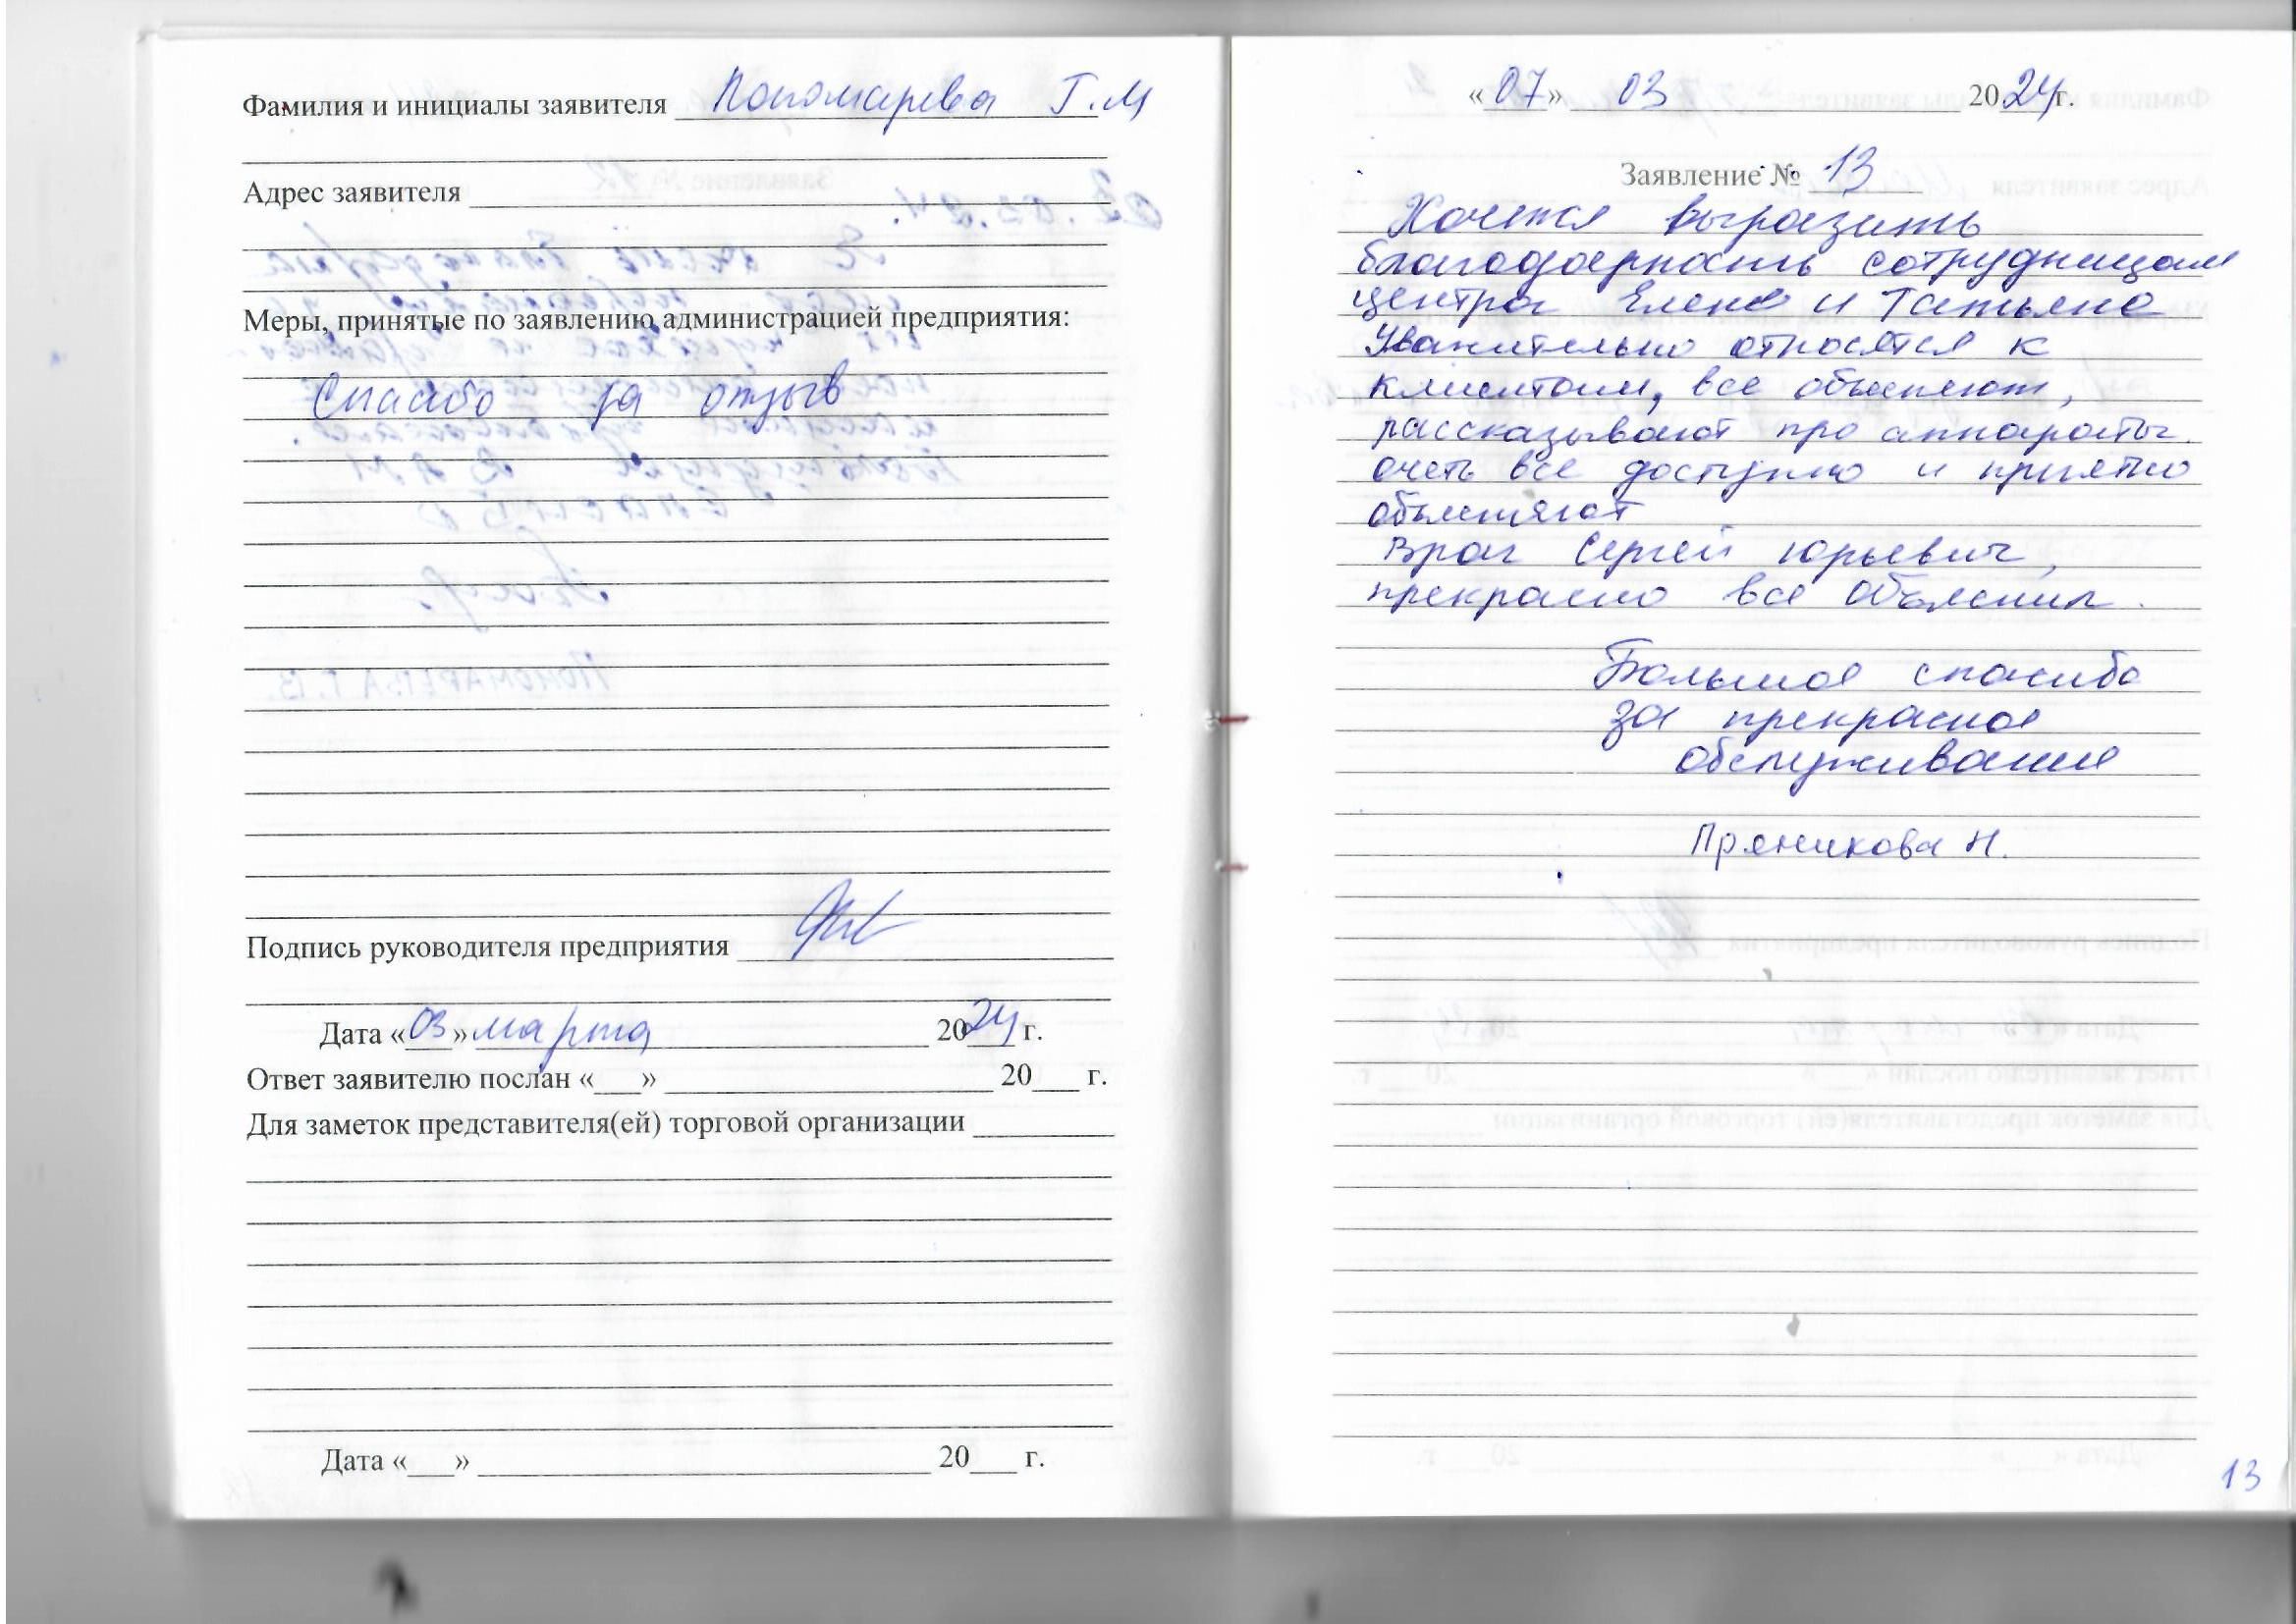 Фамилия и инициалы заявителя Пономарева Г.М
Адрес заявителя
Меры, принятые по заявлению администрацией предприятия:
Спасибо за отзыв
Подпись руководителя предприятия
Дата «03» марта 2024 г.
Ответ заявителю послан «___» 20___ г.
Для заметок представителя(ей) торговой организации
Дата «___» 20___ г.
«07» 03 2024г.
Заявление № 13
Хочется выразить
благодарность сотрудницам
центра Елене и Татьяне
Уважительно относятся к
клиентам, все объясняют,
рассказывают про аппараты.
очеть все доступно и приятно
объясняют
Врач Сергей Юрьевич,
прекрасно все объяснил.
Большое спасибо
за прекрасное
обслуживание
Пряникова Н.
13